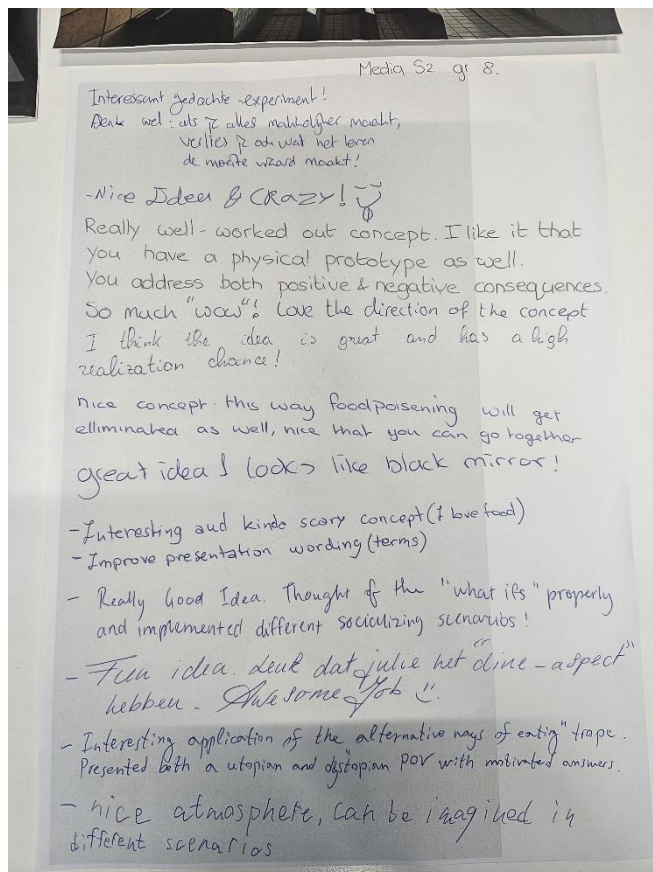 Media S2 gr 8.
Interessant gedachte-experiment!
Denk wel: als je alles makkelijker maakt,
verlies je ook wat het leven
de moeite waard maakt!
-Nice Idea & CRAZY!
Really well-worked out concept. I like it that
you have a physical prototype as well.
You address both positive & negative consequences.
So much "wow"! Love the direction of the concept
I think the idea is great and has a high
realization chance!
nice concept. this way foodpoisening will get
elliminated as well, nice that you can go together
great idea! looks like black mirror!
- Interesting and kinda scary concept (I love food)
- Improve presentation wording (terms)
- Really Good Idea. Thought of the "what ifs" properly
and implemented different socializing scenarios!
- Fun idea. Leuk dat julie het "dine-aspect"
hebben. Awesome Job
- Interesting application of the alternative ways of eating" trope.
Presented both a utopian and dystopian POV with motivated answers.
- nice atmosphere, can be imagined in
different scenarios